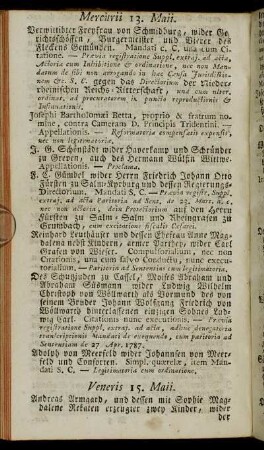 Mercurii 13. Maii.
Verwittibter Freyfrau von Schmidburg, wider Ge-
richtschöffen, Burgermeister und Vierer des
Fleckens Gemünden. Mandati c. C. una cum Ci-
tatione. — Praevia registratione Suppl. extraj. ad acta,
Actoria cum Inhibitione & ordinatione, nec non Man-
datum de sibi non arrogando in hac Causa Jurisdictio-
nem &c. S. C. gegen das Directorium der Nieder-
rheinischen Reichs-Ritterschaft, und cum ulter.
ordinat. ad procuratorem in puncto reproductionis &
Insinuationis.
Josephi Bartholomaei Betta, proprio & fratrum no-
mine, contra Cameram D. Principis Tridentini. —
Appellationis. — Reformatoria compensatis expensis,
nec non legitimatoria.
J. G. Schönstädt wider Haverkamp und Schründer
zu Greven, auch des Hermann Wülsin Wittwe.
Appellationis. — Proclama.
J. C. Gümbel wider Herrn Friedrich Johann Otto
Fürsten zu Salm-Kyrburg und dessen Regierungs-
Directorium. Mandati S. C. — Praevia registr. Suppl.
extraj. ad acta Paritoria ad Sent. de 22. Mart. a. c.
nec non arctior, dein Proclama auf den Herrn
Fürsten zu Salm-Salm und Rheingrafen zu
Grumbach, cum excitatione fiscalis Caesarei.
Reinhard Leuthäuser und dessen Ehefrau Anne Mag-
dalena nebst Kindern, armer Parthey, wider Carl
Grafen von Wieser. Compulsorialium, una cum
Citationis, una cum salvo Conductu, nunc execu-
torialium. — Paritoria ad Sententiam cum legitimatoria.
Des Schutzjuden zu Cassel, Moses Abraham und
Abraham Süsmann wider Ludwig Wilhelm
Christoph von Wöllwarth als Vormund des von
seinem Bruder Johann Wolfgang Friedrich von
Wöllwarth hinterlassenen einzigen Sohnes Lud-
wig Carl. Citationis nunc executionis. — Praevia
registratione Suppl. extraj. ad acta, adhuc denegatoria
transcriptionis Mandati de exequendo, cum paritoria ad
Sententiam de 27 Apr. 1787.
Adolph von Meerfeld wider Johannsen von Meer-
feld und Conforten. Simpl. querelae, item Man-
dati S. C. — Legitimatoria cum ordinatione.
Veneris 15. Maii.
Andreas Armgard, und dessen mit Sophie Mag-
dalene Rekuten erzeugter zwey Kinder, wider
der